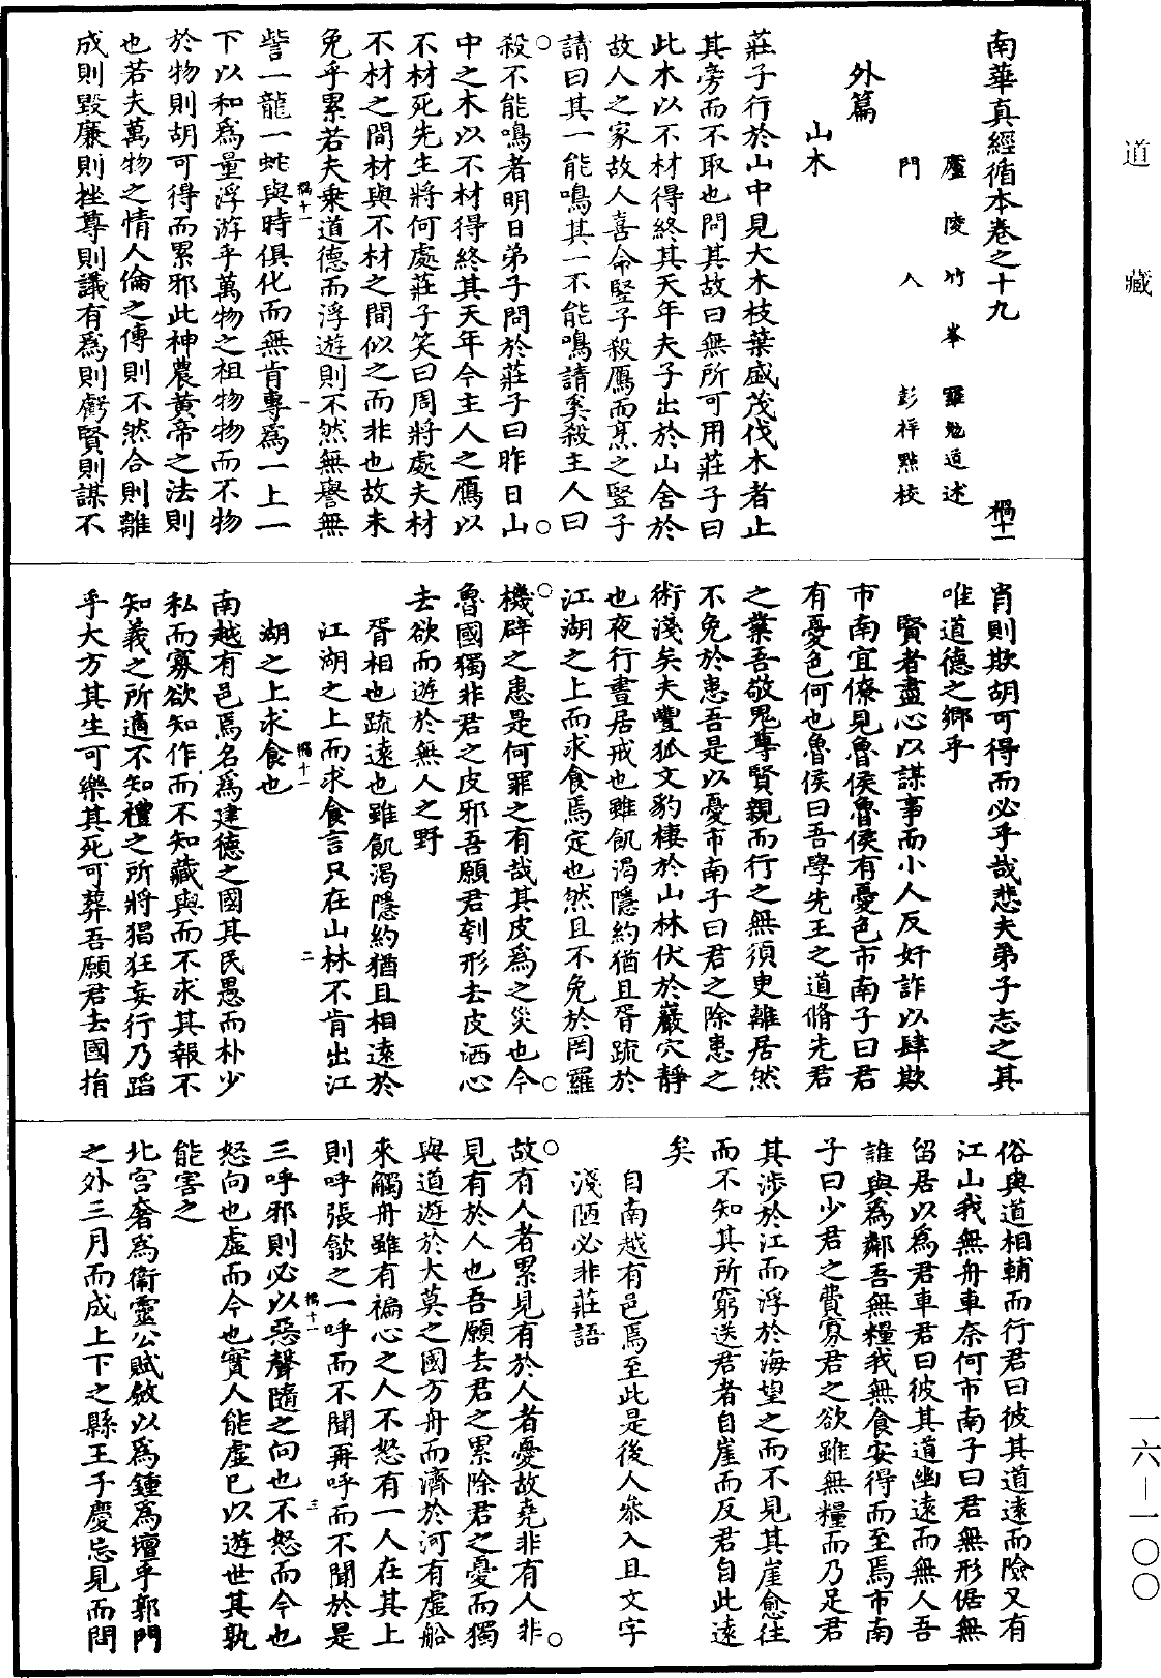 南華真經循本卷之十九 禍十一
廬陵竹峯羅勉道述
門人彭祥點校
外篇
山木
莊子行於山中見大木枝葉盛茂伐木者止
其旁而不取也問其故曰無所可用莊子曰
此木以不材得終其天年夫子出於山舍於
故人之家故人喜命竪子殺鴈而烹之竪子
請曰其一能鳴其一不能鳴請奚殺主人曰
殺不能鳴者明日弟子問於莊子曰昨日山
中之木以不材得終其天年今主人之鴈以
不材死先生將何處莊子笑曰周將處夫材
不材之間材與不材之間似之而非也故未
免乎累若夫乘道德而浮遊則不然無譽無
訾一龍一蛇與時俱化而無肯專為一上一
下以和為量浮游乎萬物之祖物物而不物
於物則胡可得而累邪此神農黃帝之法則
也若夫萬物之情人倫之傳則不然合則離
成則毀廉則挫尊則議有為則虧賢則謀不
肖則欺胡可得而必乎哉悲夫弟子志之其
唯道德之鄉乎
賢者盡心以謀事而小人反奸詐以肆欺
市南宜僚見魯侯魯侯有憂色市南子曰君
有憂色何也魯侯曰吾學先王之道脩先君
之業吾敬鬼尊賢親而行之無須臾離居然
不免於患吾是以憂市南子曰君之除患之
術淺矣夫豐狐文豹棲於山林伏於巖穴靜
也夜行晝居戒也雖飢渴隱約猶且胥疏於
江湖之上而求食焉定也然且不免於罔羅
機辟之患是何罪之有哉其皮為之災也今
魯國獨非君之皮邪吾願君刳形去皮洒心
去欲而遊於無人之野
胥相也疏遠也雖飢渴隱約猶且相遠於
江湖之上而求食言只在山林不肯出江
湖之上求食也
南越有邑焉名為建德之國其民愚而朴少
私而寡欲知作而不知藏與而不求其報不
知義之所適不知禮之所將猖狂妄行乃蹈
乎大方其生可樂其死可葬吾願君去國捐
俗與道相輔而行君曰彼其道遠而險又有
江山我無舟車奈何市南子曰君無形倨無
留居以為君車君曰彼其道幽遠而無人吾
誰與為鄰吾無糧我無食安得而至焉市南
子曰少君之費寡君之欲雖無糧而乃足君
其涉於江而浮於海望之而不見其崖愈往
而不知其所窮送君者自崖而反君自此遠
矣
自南越有邑焉至此是後人參入且文字
淺陋必非莊語
故有人者累見有於人者憂故堯非有人非
見有於人也吾願去君之累除君之憂而獨
與道遊於大莫之國方舟而濟於河有虛船
來觸舟雖有褊心之人不怒有一人在其上
則呼張歙之一呼而不聞再呼而不聞於是
三呼邪則必以惡聲隨之向也不怒而今也
怒向也虛而今也實人能虛己以遊世其孰
能害之
北宮奢為衛靈公賦斂以為鍾為壇乎郭門
之外三月而成上下之縣王子慶忌見而問
禍十一 一
禍十一 二
禍十一 三
道藏
一六—一〇〇